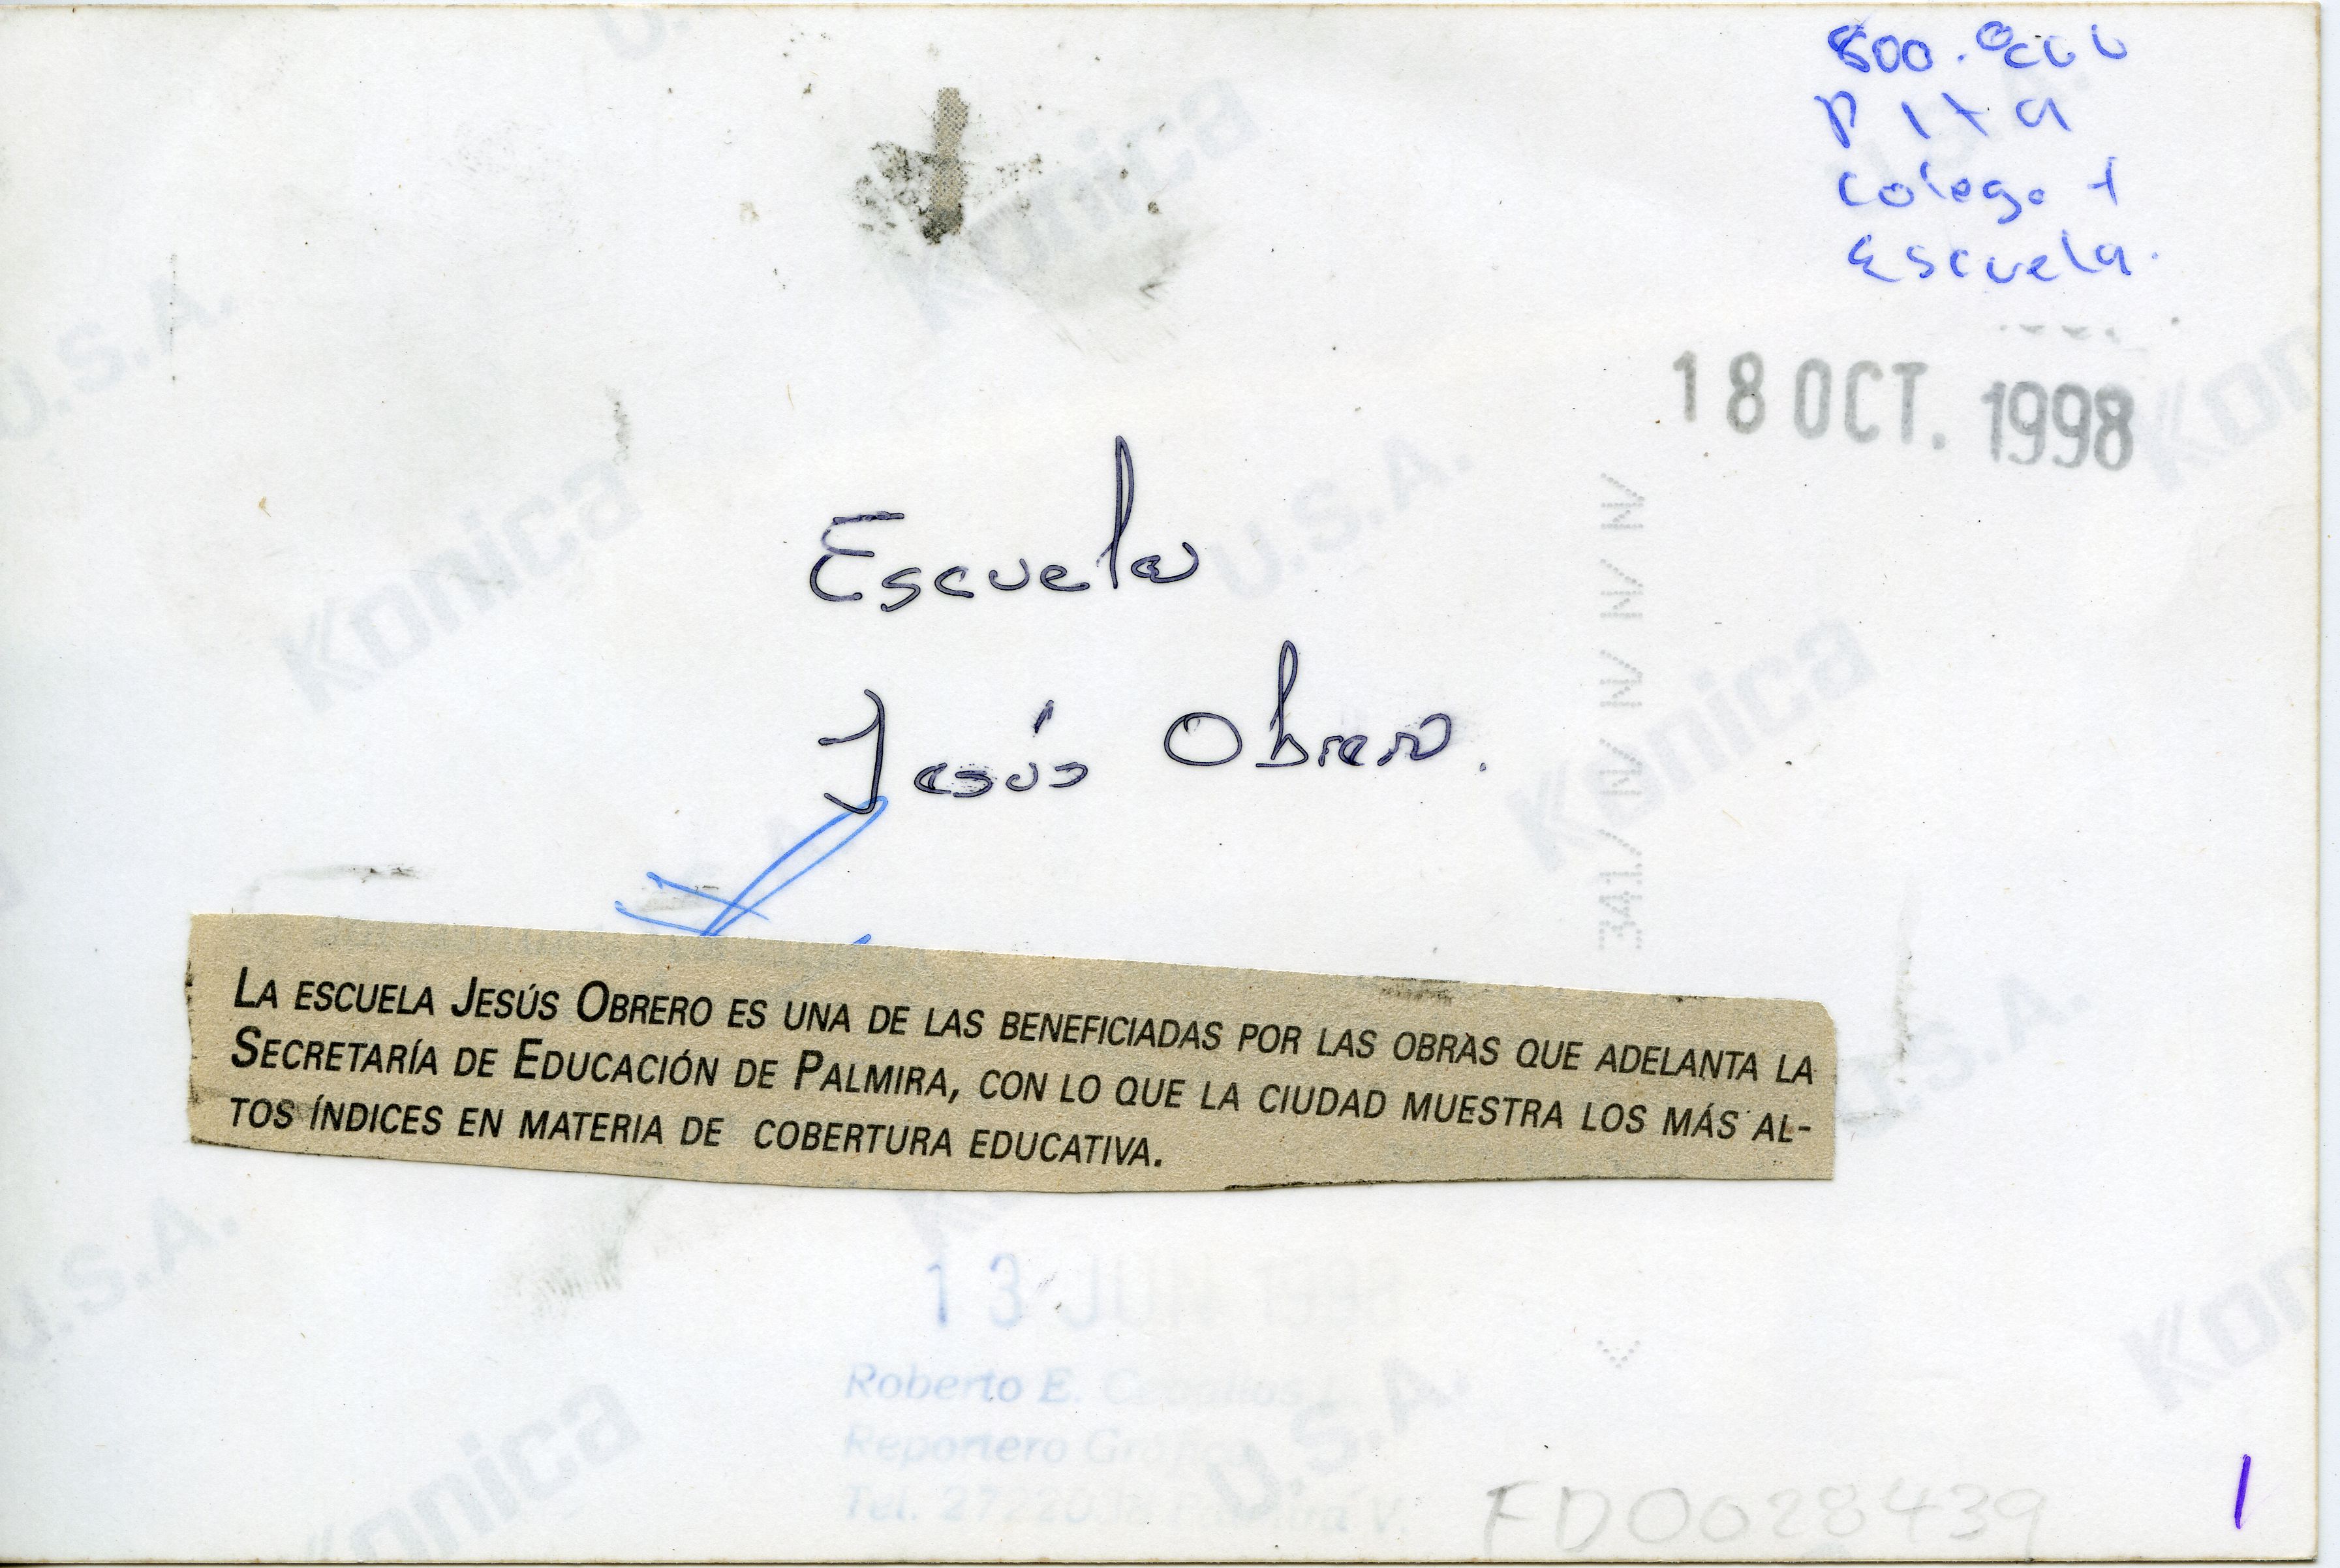 colego +
Escuela.
18 OCT. 1998
Escuela
Jesús Obrero.
LA ESCUELA JESÚS OBRERO ES UNA DE LAS BENEFICIADAS POR LAS OBRAS QUE ADELANTA LA
SECRETARÍA DE EDUCACIÓN DE PALMIRA, CON LO QUE LA CIUDAD MUESTRA LOS MÁS AL-
TOS ÍNDICES EN MATERIA DE COBERTURA EDUCATIVA.
13 JUN
Roberto E. Ceballos
Reportero Gráfico
Tel.
FD0028439
Konica
U.S.A.